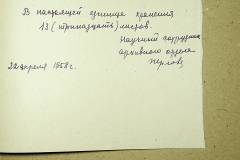 В настоящей единице хранения
13 (тринадцать) листов.
Научный сотрудник
архивного отдела
22 апреля 1958 г.